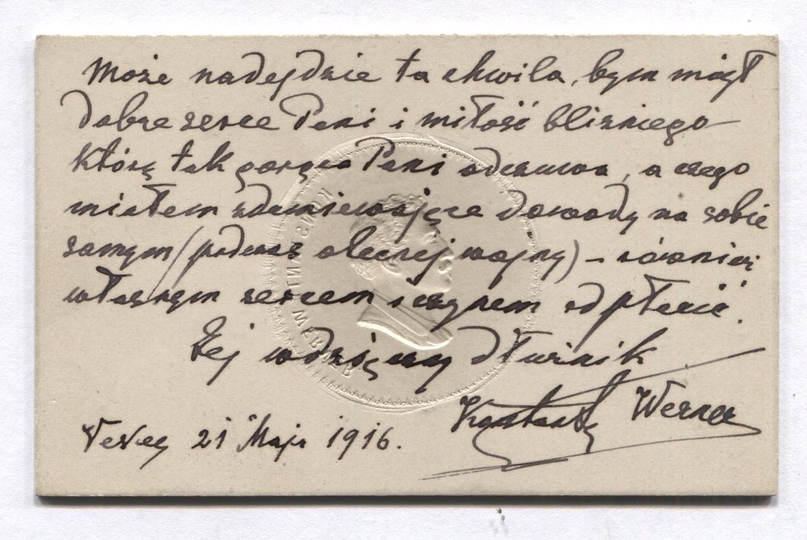 Może nadejdzie ta chwila, bym mógł
dobre serce Pani i miłość bliźniego
którą tak gorąco Pani odczuwa, a czego
miałem zdumiewające dowody na sobie
samym (podczas obecnej wojny) – również
własnym sercem i czynem odpłacić.
Jej wdzięczny dłużnik
Werner
Vevey 21 Maja 1916.